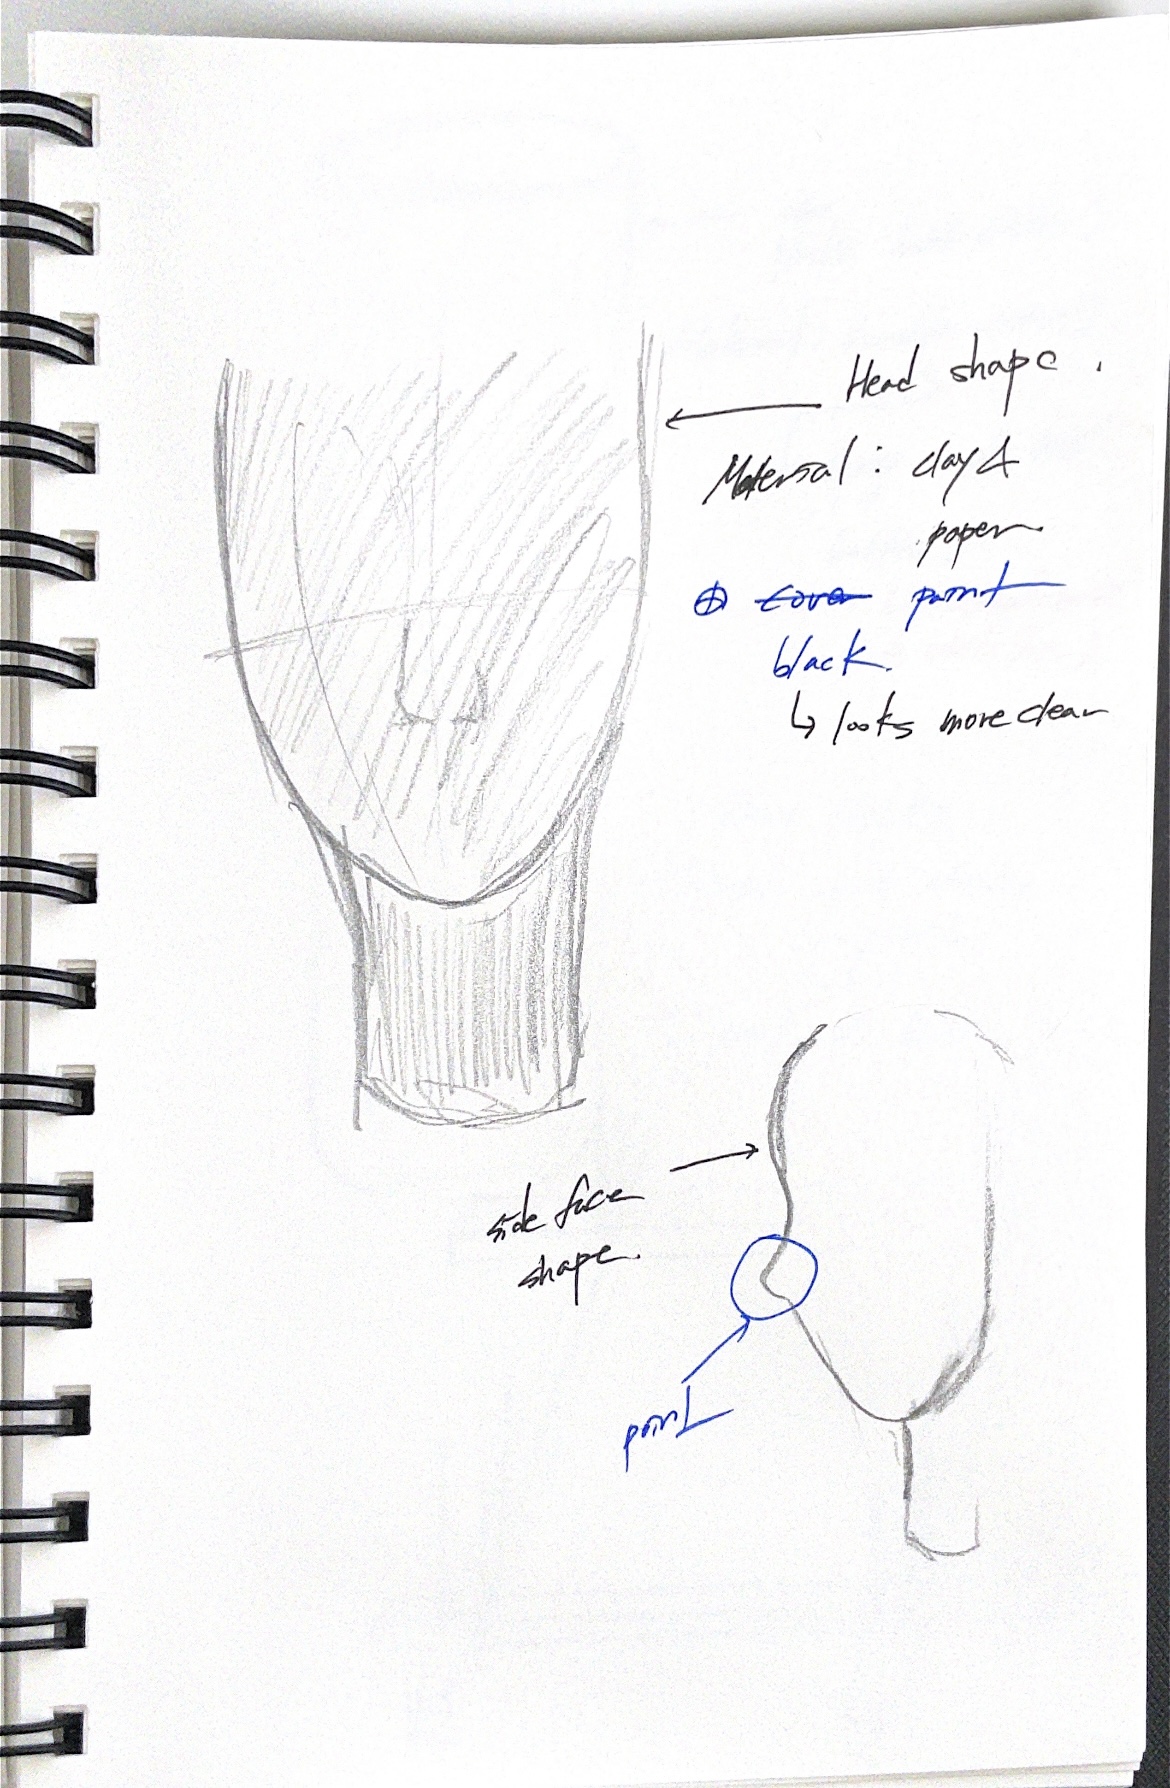 Head shape.
Material: clay &
paper
⊕ cover paint
black.
↳ looks more clear
side face
shape.
point